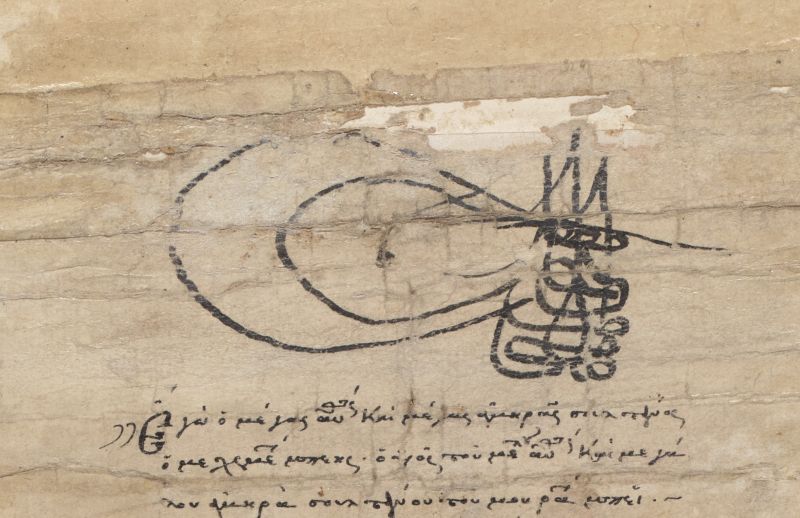 Ἐγὼ ὁ μέγας αὐθ(έντης) καὶ μέγας ἀμηρᾶς σουλτάνος
ὁ μεχεμὲτ μπεης · ὁ υἱὸς τοῦ μεγ(ά)λ(ου) αὐθ(έντου) καὶ μεγά
λου ἀμηρᾶ σουλτάνου · τοῦ μουρὰτ μπεϊ · ~